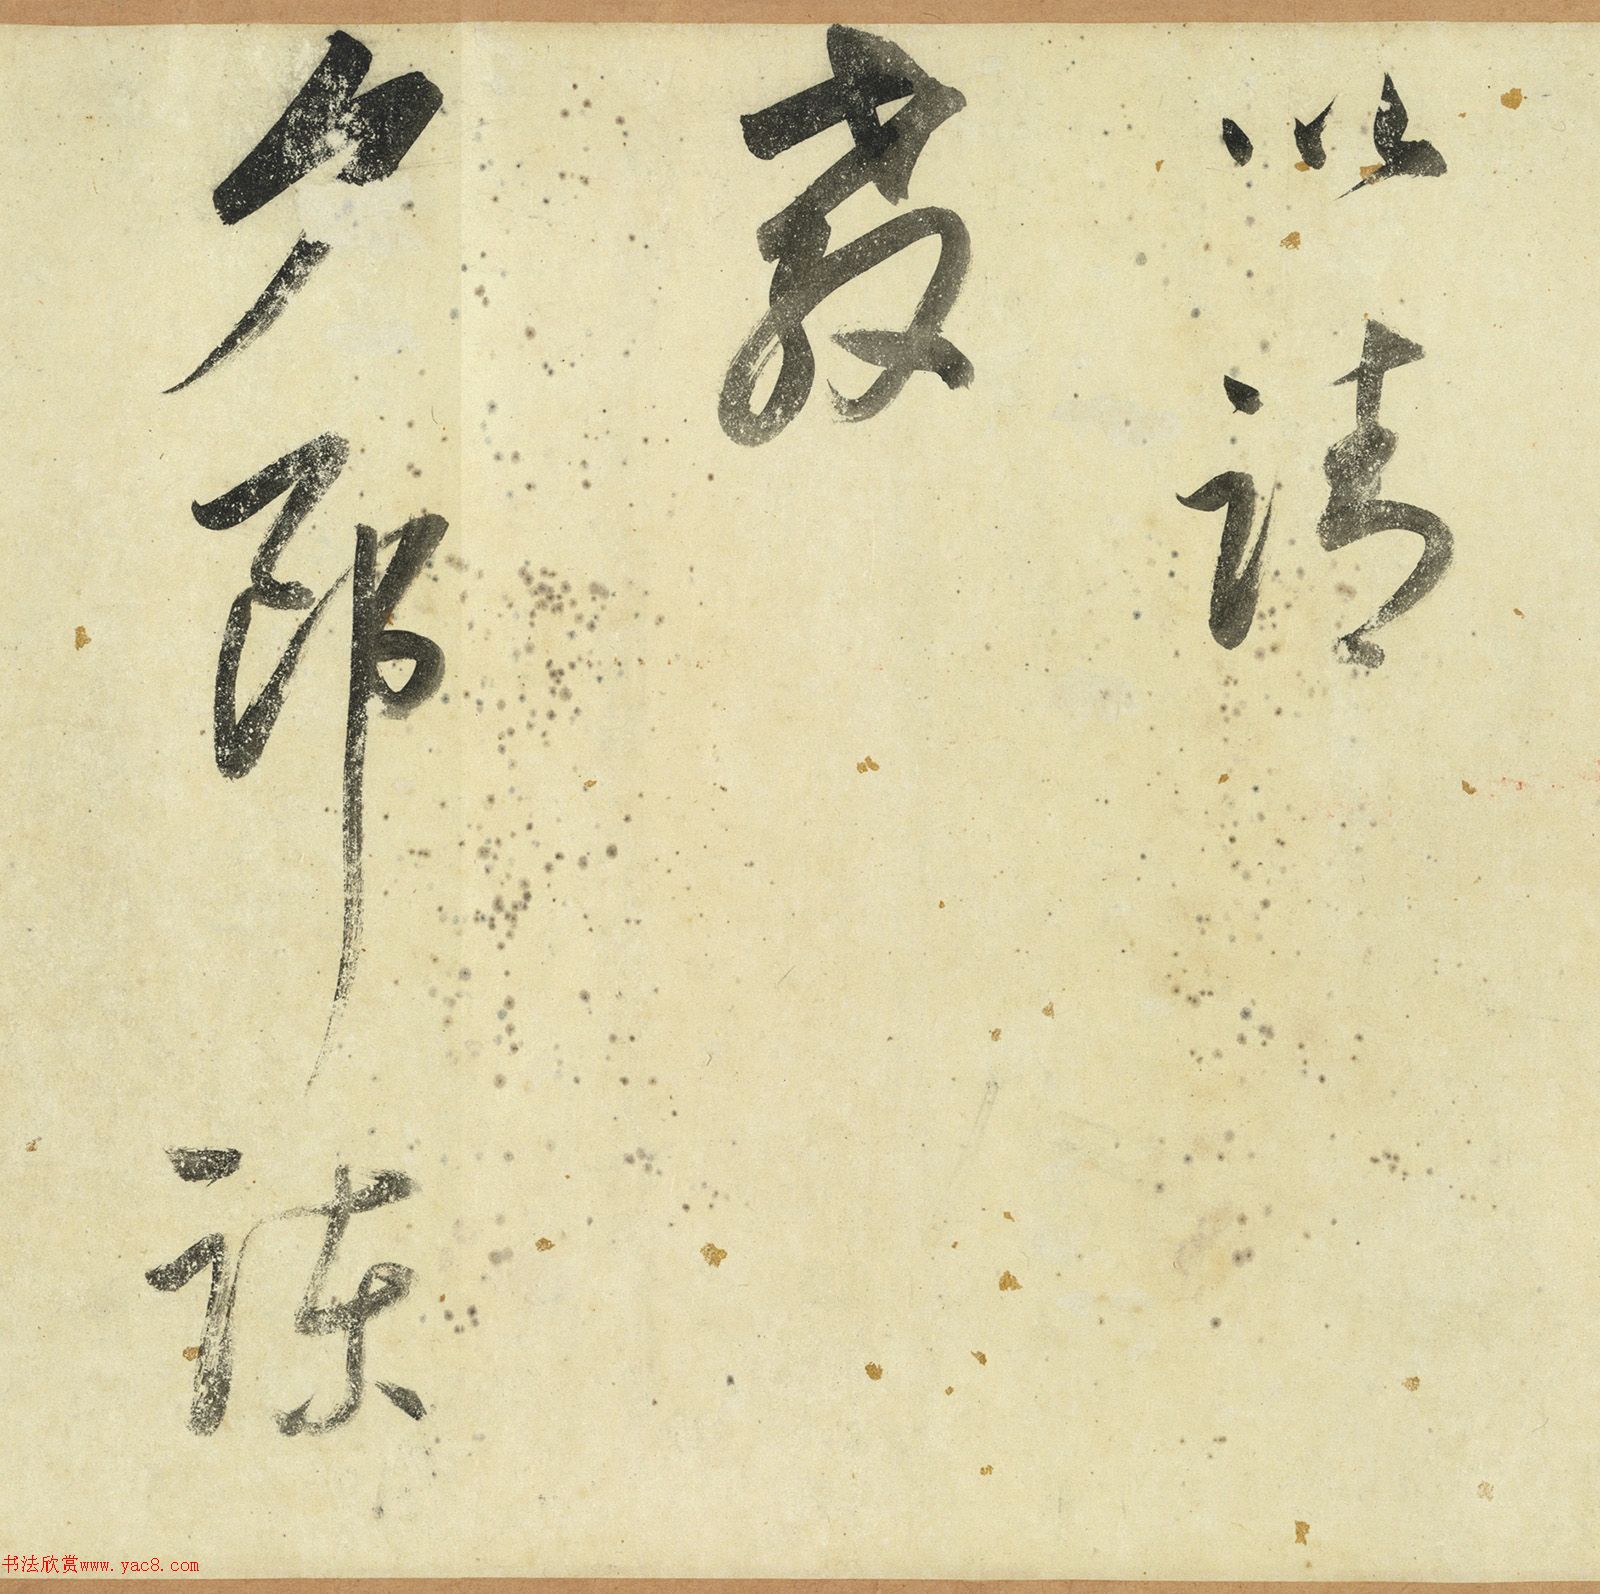 以请
教
夕郎谏
书法欣赏www.yac8.com